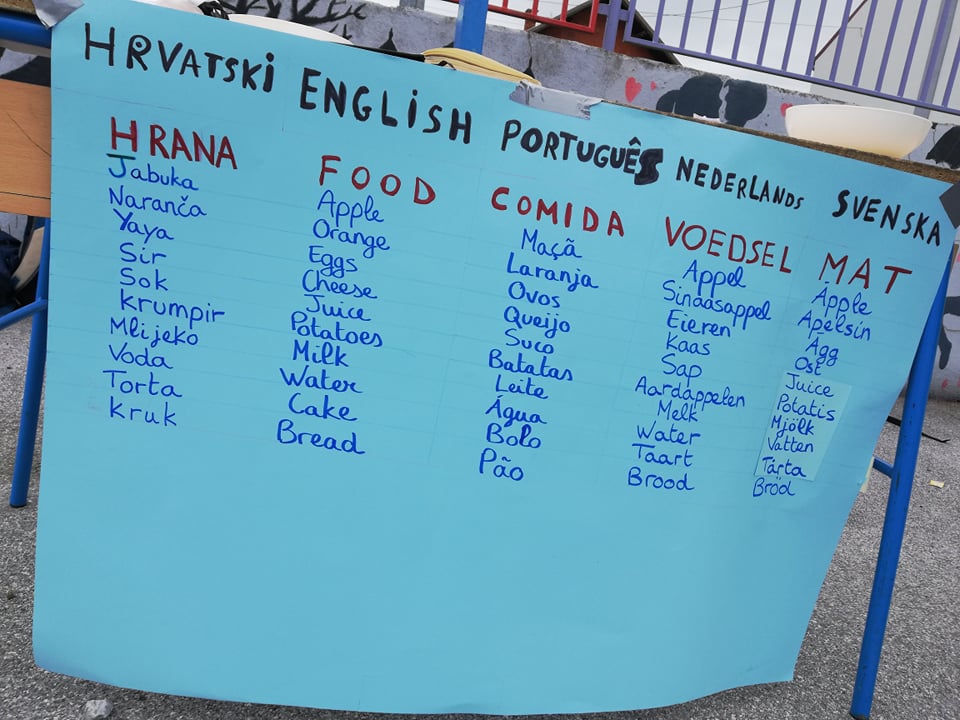 HRVATSKI
HRANA
Jabuka
Naranča
Yaya
Sir
Sok
Krumpir
Mlijeko
Voda
Torta
Kruk
ENGLISH
FOOD
Apple
Orange
Eggs
Cheese
Juice
Potatoes
Milk
Water
Cake
Bread
PORTUGUÊS
COMIDA
Maçã
Laranja
Ovos
Queijo
Suco
Batatas
Leite
Água
Bolo
Pão
NEDERLANDS
VOEDSEL
Appel
Sinaasappel
Eieren
Kaas
Sap
Aardappelen
Melk
Water
Taart
Brood
SVENSKA
MAT
Äpple
Apelsin
Ägg
Ost
Juice
Potatis
Mjölk
Vatten
Tårta
Bröd